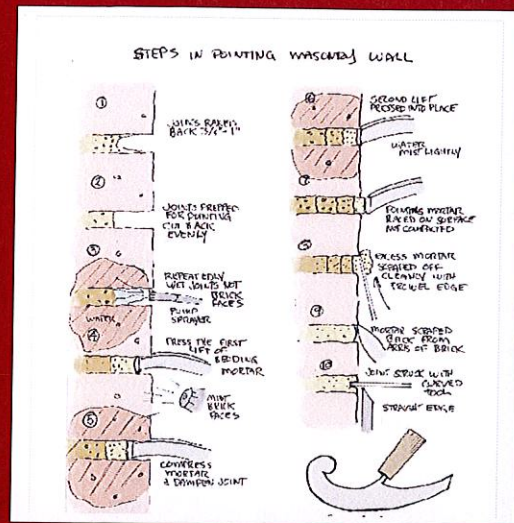 STEPS IN POINTING MASONRY WALL
①
JOINTS RAKED
BACK 3/4"-1"
②
JOINTS PREPPED
FOR POINTING
CUT BACK
EVENLY
③
REPEATEDLY
WET JOINTS NOT
BRICK
FACES
PUMP
SPRAYER
WATER
④
PRESS THE FIRST
LIFT OF
BEDDING
MORTAR
MIST
BRICK
FACES
⑤
COMPRESS
MORTAR
& DAMPEN JOINT
⑥
SECOND LIFT
PRESSED INTO PLACE
WATER
MIST LIGHTLY
⑦
POINTING MORTAR
ON SURFACE
NOT COMPACTED
⑧
EXCESS MORTAR
SCRAPED OFF
CLEANLY WITH
TROWEL EDGE
⑨
MORTAR SCRAPED
BACK FROM
ARRIS OF BRICK
⑩
JOINT STRUCK WITH
CURVED
TOOL
STRAIGHT EDGE